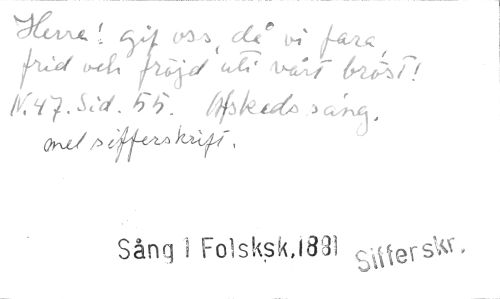 Herre! gif oss, då vi fara,
frid och fröjd uti vårt bröst!
N. 47. Sid. 55. Afskedssång.
mel sifferskrift.
Sång I Folsksk.,1881 Sifferskr.